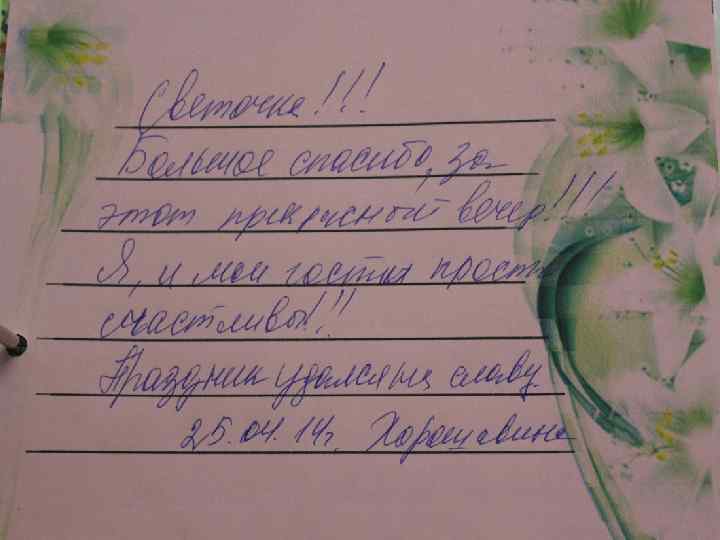 Светочка!!!
Большое спасибо, за
этот прекрасный вечер!!!
Я, и мои гости просто
счастливы!!!
Праздник удался на славу.
25.04.14г. Хорошавина